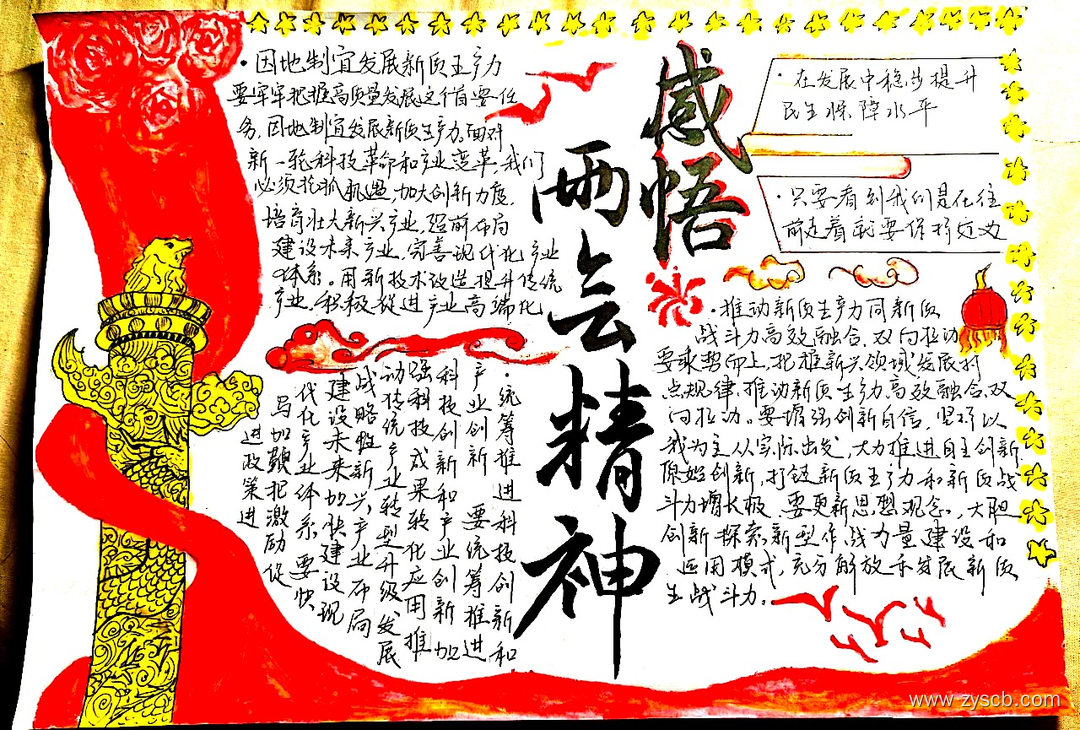 感悟
两会精神
·因地制宜发展新质生产力
要牢牢把握高质量发展这个首要任
务,因地制宜发展新质生产力。面对
新一轮科技革命和产业变革,我们
必须抢抓机遇,加大创新力度,
培育壮大新兴产业,超前布局
建设未来产业,完善现代化产业
体系。用新技术改造提升传统
产业,积极促进产业高端化
·统筹推进科技创新和
产业创新 要统筹推进
科技创新和产业创新加
强科技成果转化应用推
动传统产业转型升级发展
战略性新兴产业布局
建设未来加快建设现
代化产业体系要快
马加鞭把激励促
进政策进
·在发展中稳步提升
民生保障水平
·只要看到我们是在往
前走着 要保持定力
·推动新质生产力同新质
战斗力高效融合,双向拉动
要乘势而上,把握新兴领域发展特
点规律,推动新质生产力高效融合,双
向拉动。要增强创新自信,坚持以
我为主从实际出发,大力推进自主创新
原始创新,打造新质生产力和新质战
斗力增长极,要更新思想观念。大胆
创新探索新型作战力量建设和
运用模式,充分解放和发展新质
生战斗力。
www.zyscb.com